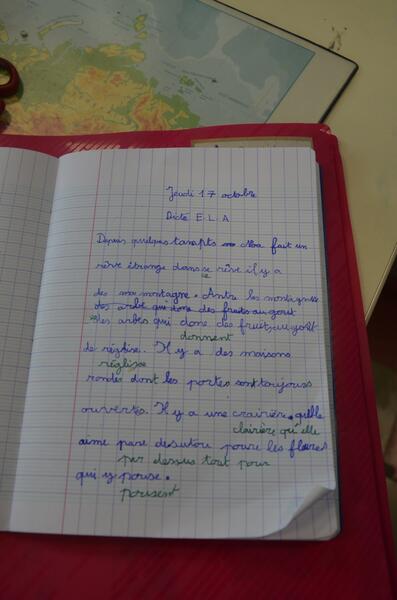 Jeudi 17 octobre
Dicté E.L.A
Depuis quelques Noa fait un
rêve étrange dans se rêve il y a
ce
des montagne. Antre les montagnes
des arbe qui done des fruits au gout
des arbes qui done des fruits au goût
donnent
de réglise. Il y a des maisons
réglisse
rondes dont les portes sont toujours
ouvertes. Il y a une crairière quelle
clairière qu'elle
aime pare desutou poure les fleures
par dessus tout pour
qui y pouse.
pousent